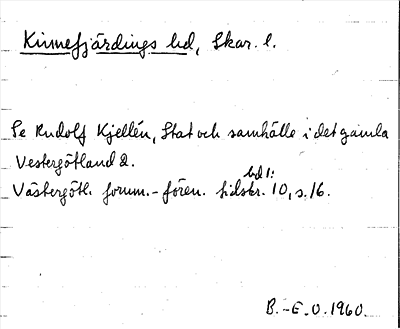 Kinnefjärdings hd, Skar. l.
Se Rudolf Kjellén, Stat och samhälle i det gamla
Vestergötland 2.
Västergötl. fornm.-fören. tidskr. bd 1: 10, s. 16.
B.-E. O. 1960.